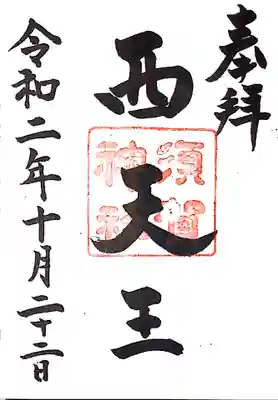 奉拝
西天王
須賀神社
令和二年十月二十二日